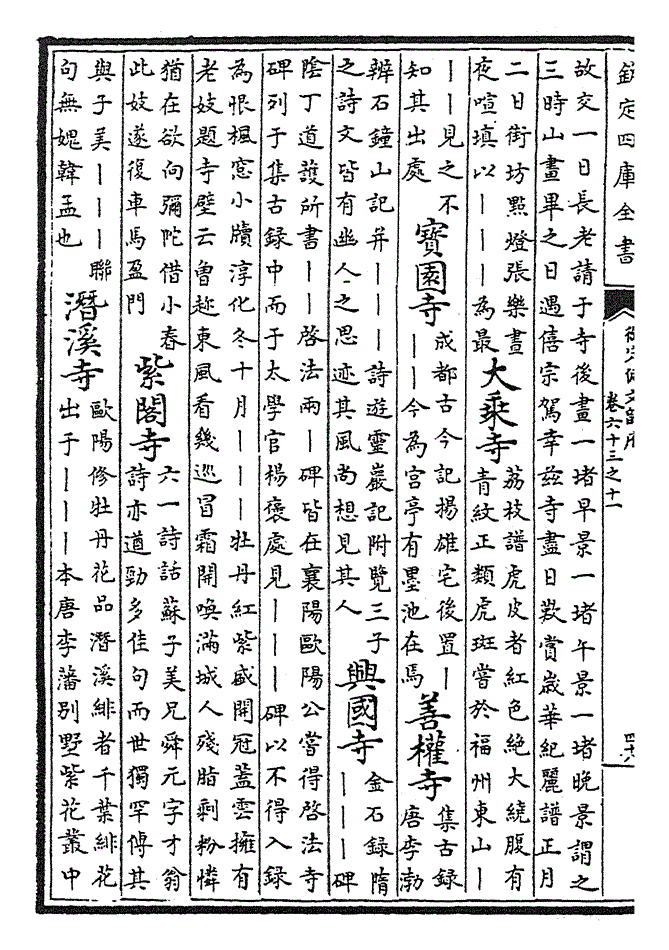 欽定四庫全書
卷六十三之十一
故交一日長老請于寺後畫一堵早景一堵午景一堵晚景謂之
三時山畫畢之日遇僖宗駕幸兹寺盡日歎賞歲華紀麗譜正月
二日街坊點燈張樂晝
夜喧填以———為最
大乗寺
荔枝譜虎皮者紅色絶大繞腹有
青紋正類虎斑嘗於福州東山—
——見之不
知其出處
寶園寺
成都古今記揚雄宅後置—
——今為宫亭有墨池在焉
善權寺
集古録
唐李渤
辨石鐘山記并———詩遊靈巖記附覽三子
之詩文皆有幽人之思迹其風尚想見其人
興國寺
金石録隋
———碑
陰丁道護所書——啓法兩—碑皆在襄陽歐陽公嘗得啓法寺
碑列于集古録中而于太學官楊褒處見———碑以不得入録
為恨楓窓小牘淳化冬十月———牡丹紅紫盛開冠蓋雲擁有
老妓題寺壁云曾趂東風看幾巡冒霜開喚滿城人殘脂剩粉憐
猶在欲向彌陀借小春
此妓遂復車馬盈門
紫閣寺
六一詩話蘇子美兄舜元字才翁
詩亦遒勁多佳句而世獨罕傳其
與子美———聯
句無媿韓孟也
潛溪寺
歐陽修牡丹花品潛溪緋者千葉緋花
出于———本唐李藩别墅紫花叢中